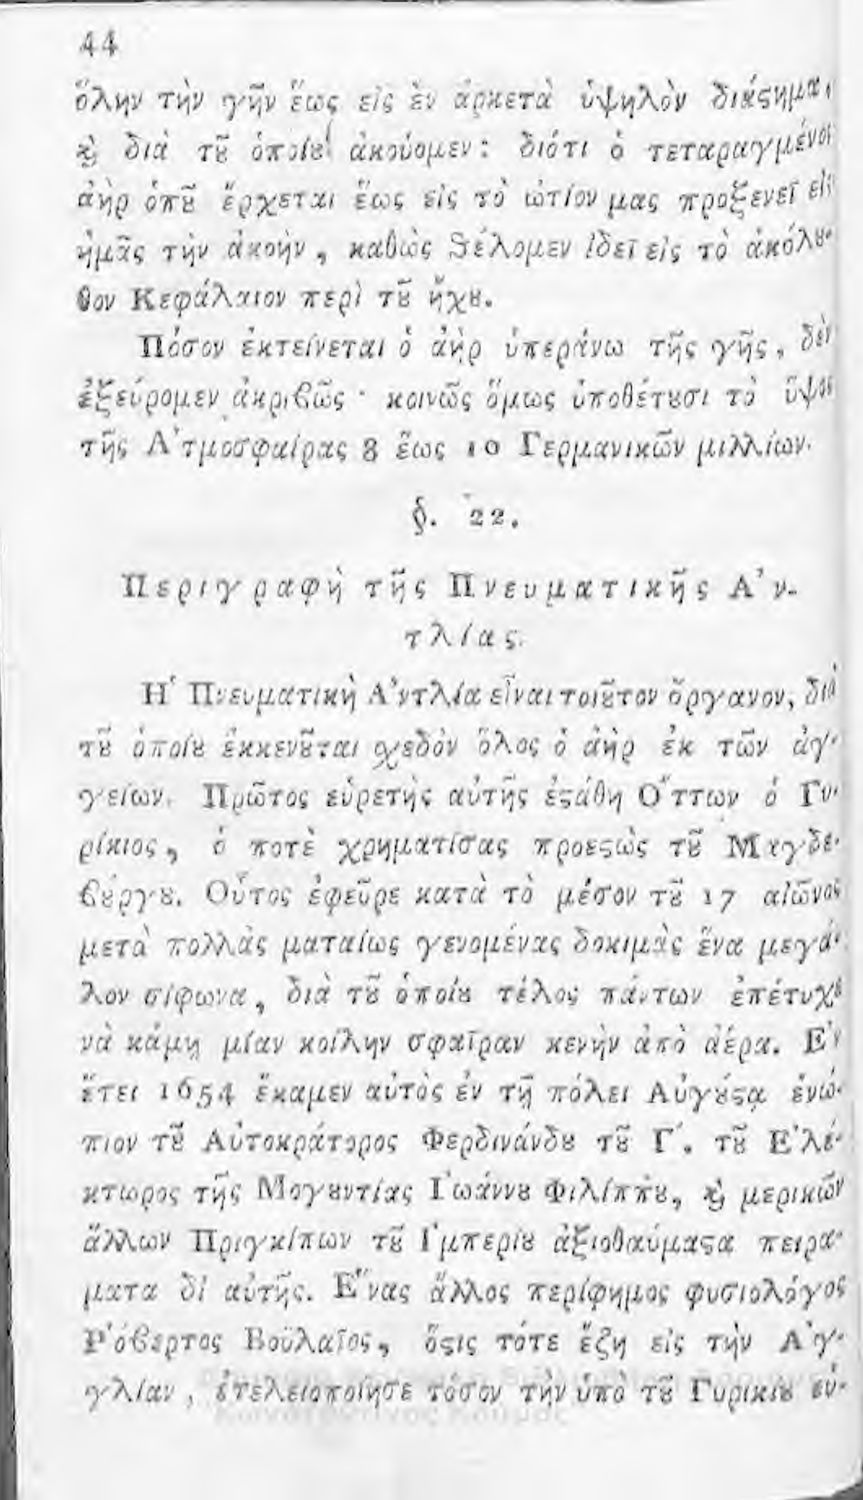 44
ὅλην τὴν γῆν ἕως εἰς ἓν ἀρκετὰ ὑψηλὸν διάϛημα,
ϗ διὰ τȣ͂ ὁποίȣ ἀκούομεν: διότι ὁ τεταραγμένος
ἀὴρ ὁπȣ͂ ἔρχεται ἕως εἰς τὸ ὠτίον μας προξενεῖ εἰς
ἡμᾶς τὴν ἀκοὴν, καθὼς θέλομεν ἰδεῖ εἰς τὸ ἀκόλȣ-
θον Κεφάλαιον περὶ τȣ͂ ἤχȣ.
Πόσον ἐκτείνεται ὁ ἀὴρ ὑπεράνω τῆς γῆς, δὲν
ἐξεύρομεν ἀκριβῶς· κοινῶς ὅμως ὑποθέτȣσι τὸ ὕψος
τῆς Ἀτμοσφαίρας 8 ἕως 10 Γερμανικῶν μιλλίων.
§. 22.
Περιγραφὴ τῆς Πνευματικῆς Ἀν-
τλίας.
Ἡ Πνευματικὴ Ἀντλία εἶναι τοιȣ͂τον ὄργανον, διὰ
τȣ͂ ὁποίȣ ἐκκενȣ͂ται σχεδὸν ὅλος ὁ ἀὴρ ἐκ τῶν ἀγ-
γείων. Πρῶτος εὑρετὴς αὐτῆς ἐϛάθη Ὄττων ὁ Γυ-
ρίκιος, ὁ ποτὲ χρηματίσας προεϛὼς τȣ͂ Μαγδε-
βȣ́ργȣ. Οὗτος ἐφεῦρε κατὰ τὸ μέσον τȣ͂ 17 αἰῶνος
μετὰ πολλὰς ματαίως γενομένας δοκιμὰς ἕνα μεγά-
λον σίφωνα, διὰ τȣ͂ ὁποίȣ τέλος πάντων ἐπέτυχε
νὰ κάμῃ μίαν κοίλην σφαῖραν κενὴν ἀπὸ ἀέρα. Ἐν
ἔτει 1654 ἔκαμεν αὐτὸς ἐν τῇ πόλει Αὐγȣ́ϛᾳ ἐνώ-
πιον τȣ͂ Αὐτοκράτορος Φερδινάνδȣ τȣ͂ Γ΄. τȣ͂ Ἐλέ-
κτωρος τῆς Μογȣντίας Ἰωάννȣ Φιλίππȣ, ϗ μερικῶν
ἄλλων Πριγκίπων τȣ͂ Ἰμπερίȣ ἀξιοθαύμαϛα πειρά-
ματα δι' αὐτῆς. Ἕνας ἄλλος περίφημος φυσιολόγος
Ῥόβερτος Βοϋλαῖος, ὅϛις τότε ἔζη εἰς τὴν Ἀγ-
γλίαν, ἐτελειοποίησε τόσον τὴν ὑπὸ τȣ͂ Γυρικίȣ εὑ-